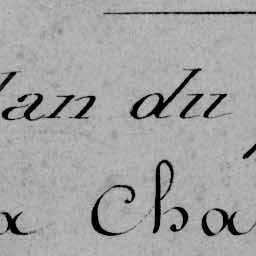 lan du
a Cha